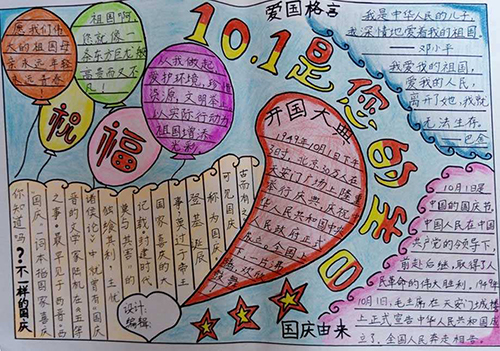 愿我们伟
大的祖国母
亲永远年轻
永远青春
!
祖国啊
你就像一
条东方巨龙般
高贵而又不
凡!
从我做起
爱护环境,珍惜
资源,文明
以实际行动
祖国增添
光彩
祝
福
10.1是您的生日
爱国格言
我是中华人民的儿子,
我深情地爱着我的祖国
邓小平
我爱我的祖国,
爱我的人民,
离开了她,我就
无法生存。
—巴金
开国大典
1949年10月1日下午
3时,北京30万人在
天安门广场上隆重
举行庆典,庆祝中
华人民共和国中央
人民政府正式
成立。全国上
下一片
欢
你知道吗?不一样的国庆
国庆一词本指国家喜庆
之事,最早见于西晋。西晋
的文学家陆机在《五等
诸侯论》中就曾有国庆
独飨其利,主忧
莫与其害"的
记载封建时代
国家喜庆的大
事,莫过于帝王
登基诞辰
称为国庆
可见国庆
古而有之
设计:
编辑:
国庆由来
10月1日是
中国的国庆节,
中国人民在中国
共产党的领导下
前赴后继,取得了人
民革命的伟大胜利。1949年
10月1日,毛主席在天安门城楼
上正式宣告中华人民共和国成
立了,全国人民奔走相告。